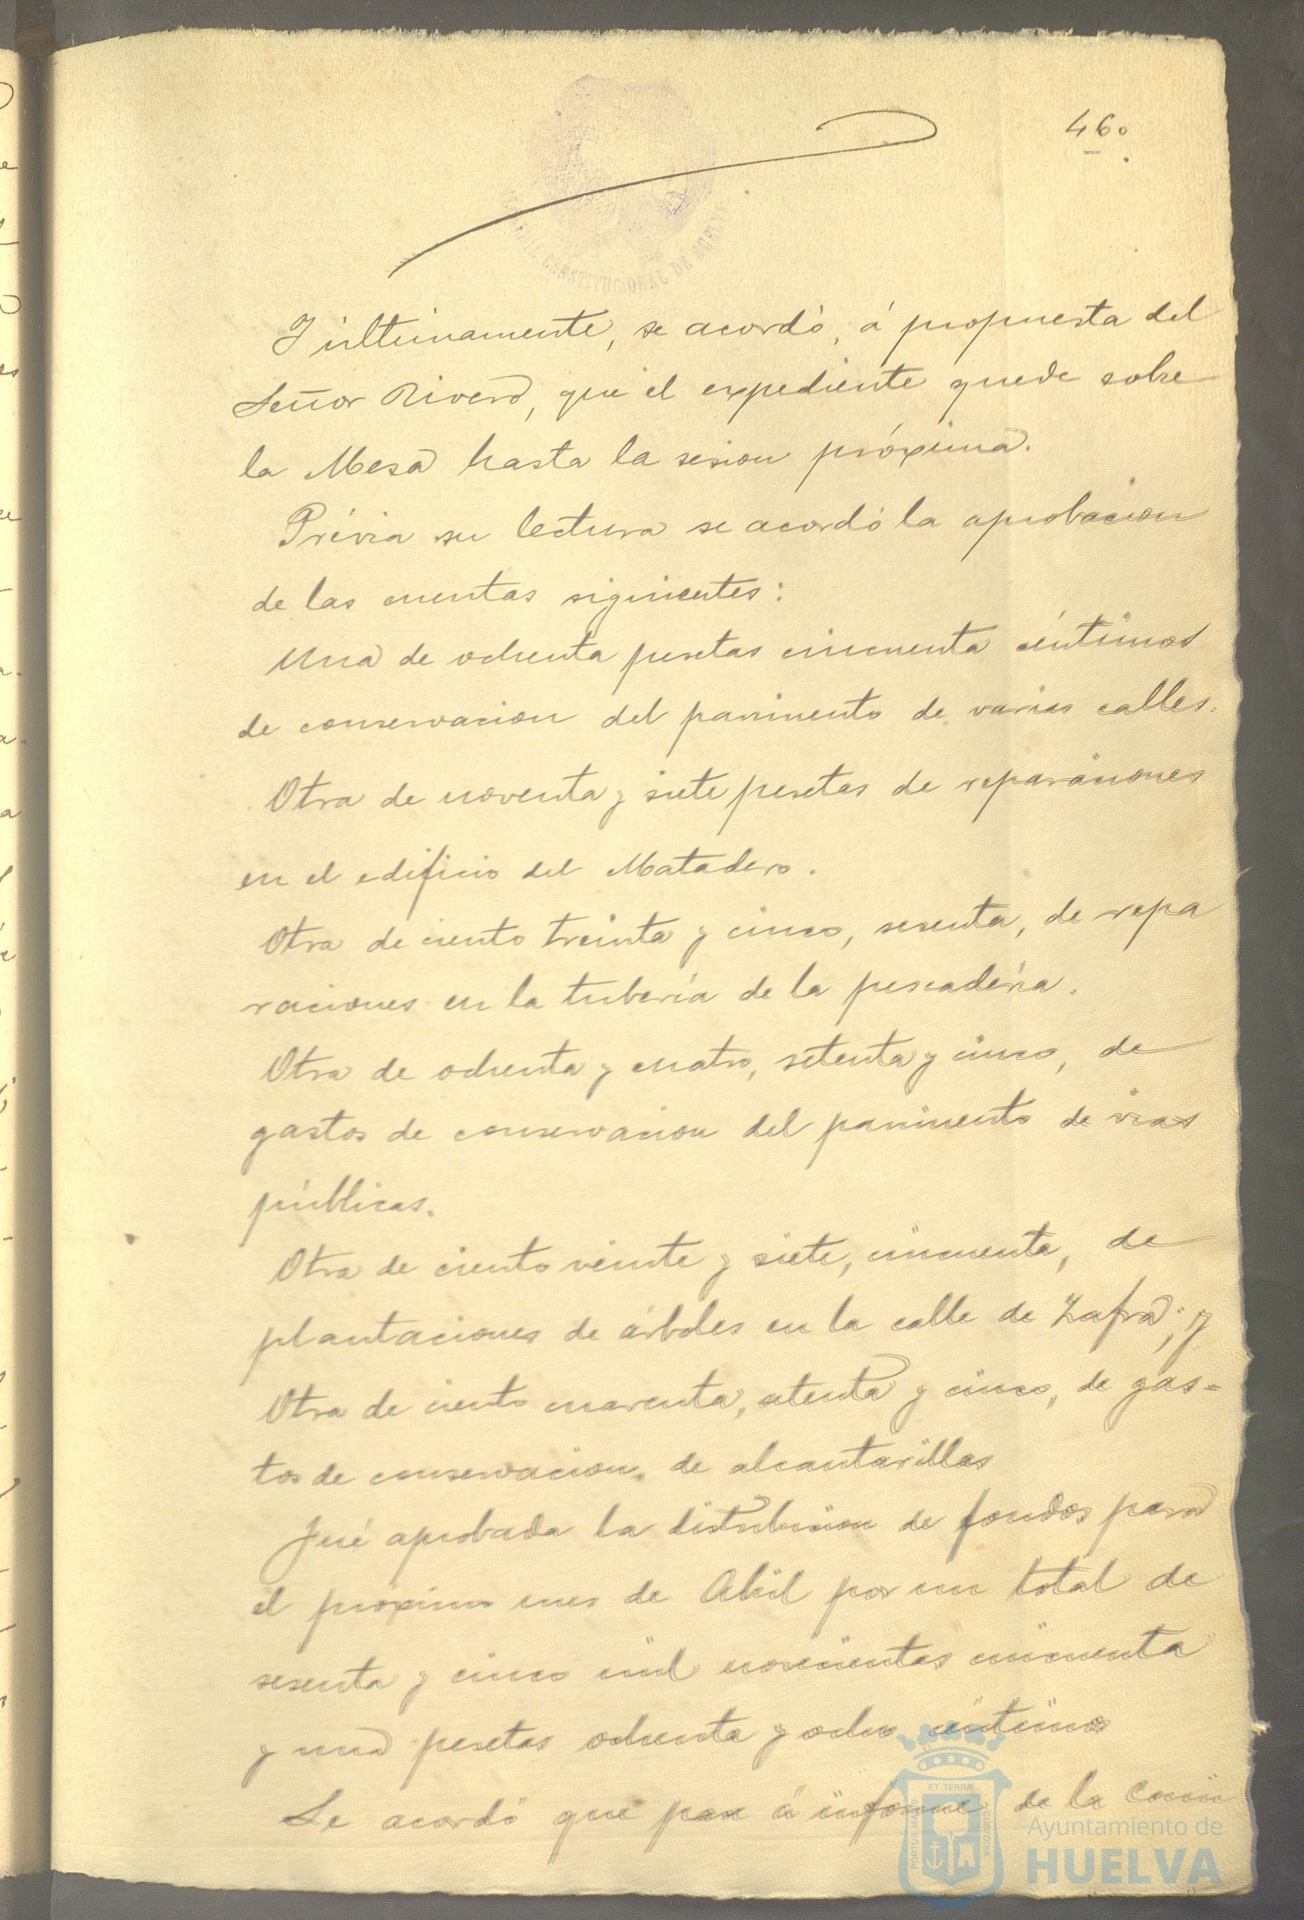 46.
CONSTITUCIONAL DE
Y ultimamente, se acordó, á propuesta del
Señor Rivero, que el expediente quede sobre
la Mesa hasta la sesion próxima.
Prévia su lectura se acordó la aprobacion
de las cuentas siguientes:
Una de ochenta pesetas cincuenta céntimos
de conservacion del pavimento de varias calles.
Otra de noventa y siete pesetas de reparaciones
en el edificio del Matadero.
Otra de ciento treinta y cinco, sesenta, de repa
raciones en la tubería de la pescadería.
Otra de ochenta y cuatro, setenta y cinco, de
gastos de conservacion del pavimento de vias
públicas.
Otra de ciento veinte y siete, cincuenta, de
plantaciones de árboles en la calle de Zafra; y
Otra de ciento cuarenta, setenta y cinco, de gas=
tos de conservacion de alcantarillas
Fué aprobada la distribucion de fondos para
el próximo mes de Abril por un total de
sesenta y cinco mil novecientas cincuenta
y una pesetas ochenta y ocho céntimos
Se acordó que pase á informe de la Comi
PORTUS MARIS ET TERRÆ CUSTODIA
Ayuntamiento de
HUELVA